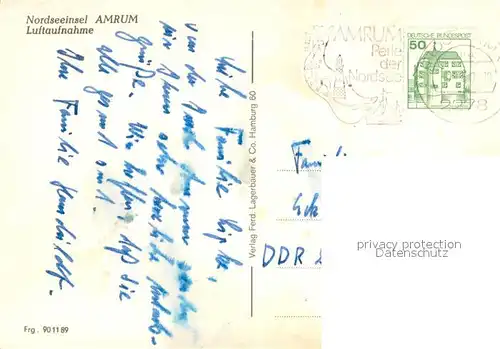 Nordseeinsel AMRUM
Luftaufnahme
Liebe Familie
von der Insel Amrum senden
wir Ihnen sehr herzliche Urlaubs-
grüße. Wir hoffen, daß die
alle gesund sind.
Ihre Familie
Frg. 901189
Verlag Ferd. Lagerbauer & Co. Hamburg 80
AMRUM
Perle
der
Nordsee
DEUTSCHE BUNDESPOST
50
Fam
DDR
privacy protection
Datenschutz